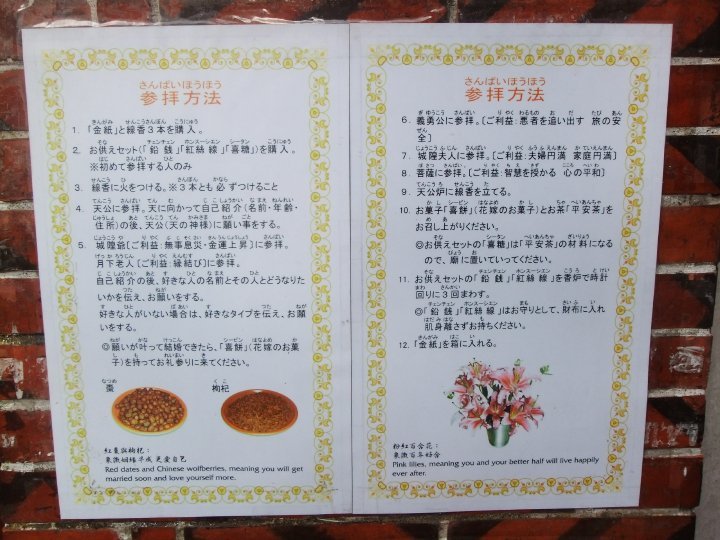 参拝方法
1. 「金紙」と線香3本を購入。
2. お供えセット(「鉛銭」「紅絲線」「喜糖」)を購入。
※初めて参拝する人のみ
3. 線香に火をつける。※3本とも必ずつけること
4. 天公に参拝。天に向かって自己紹介(名前・年齢・
住所)の後、天公(天の神様)に願い事をする。
5. 城隍爺[ご利益:無事息災・金運上昇]に参拝。
月下老人[ご利益:縁結び]に参拝。
自己紹介の後、好きな人の名前とその人とどうなりた
いかを伝え、お願いをする。
好きな人がいない場合は、好きなタイプを伝え、お願
いをする。
◎願いが叶って結婚できたら、「喜餅」(花嫁のお菓
子)を持ってお礼参りに来てください。
棗 枸杞
紅棗與枸杞:
象徵姻緣早成 更愛自己
Red dates and Chinese wolfberries, meaning you will get
married soon and love yourself more.
参拝方法
6. 義勇公に参拝。[ご利益:悪者を追い出す 旅の安
全]
7. 城隍夫人に参拝。[ご利益:夫婦円満 家庭円満]
8. 菩薩に参拝。[ご利益:智慧を授かる 心の平和]
9. 天公炉に線香を立てる。
10. お菓子「喜餅」(花嫁のお菓子)とお茶「平安茶」を
お召し上がりください。
◎お供えセットの「喜糖」は「平安茶」の材料になる
ので、廟に置いていってください。
11. お供えセットの「鉛銭」「紅絲線」を香炉で時計
回りに3回まわす。
◎「鉛銭」「紅絲線」はお守りとして、財布に入れ
肌身離さずお持ちください。
12. 「金紙」を箱に入れる。
粉紅百合花:
象徵百年好合
Pink lilies, meaning you and your better half will live happily
ever after.